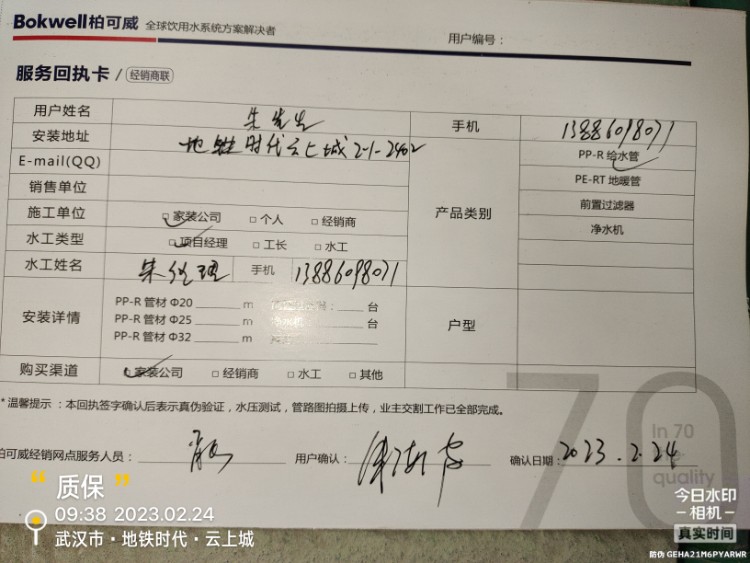 Bokwell柏可威 全球饮用水系统方案解决者
用户编号：
服务回执卡 / 经销商联
用户姓名 朱先生 手机 13886098071
安装地址 地铁时代云上城2-1-2402
E-mail(QQ)
销售单位
施工单位 □家装公司 □个人 □经销商
水工类型 □项目经理 □工长 □水工
水工姓名 朱经理 手机 13886098071
产品类别
PP-R 给水管
PE-RT 地暖管
前置过滤器
净水机
安装详情
PP-R 管材 Φ20 m 台
PP-R 管材 Φ25 m 台
PP-R 管材 Φ32 m
户型
购买渠道 家装公司 □经销商 □水工 □其他
*温馨提示：本回执签字确认后表示真伪验证，水压测试，管路图拍摄上传，业主交割工作已全部完成。
柏可威经销网点服务人员： 用户确认： 确认日期：2023.2.24
70
In 70
quality
“质保”
09:38 2023.02.24
武汉市·地铁时代·云上城
今日水印
-相机-
真实时间
防伪 GEHA21M6PYARWR